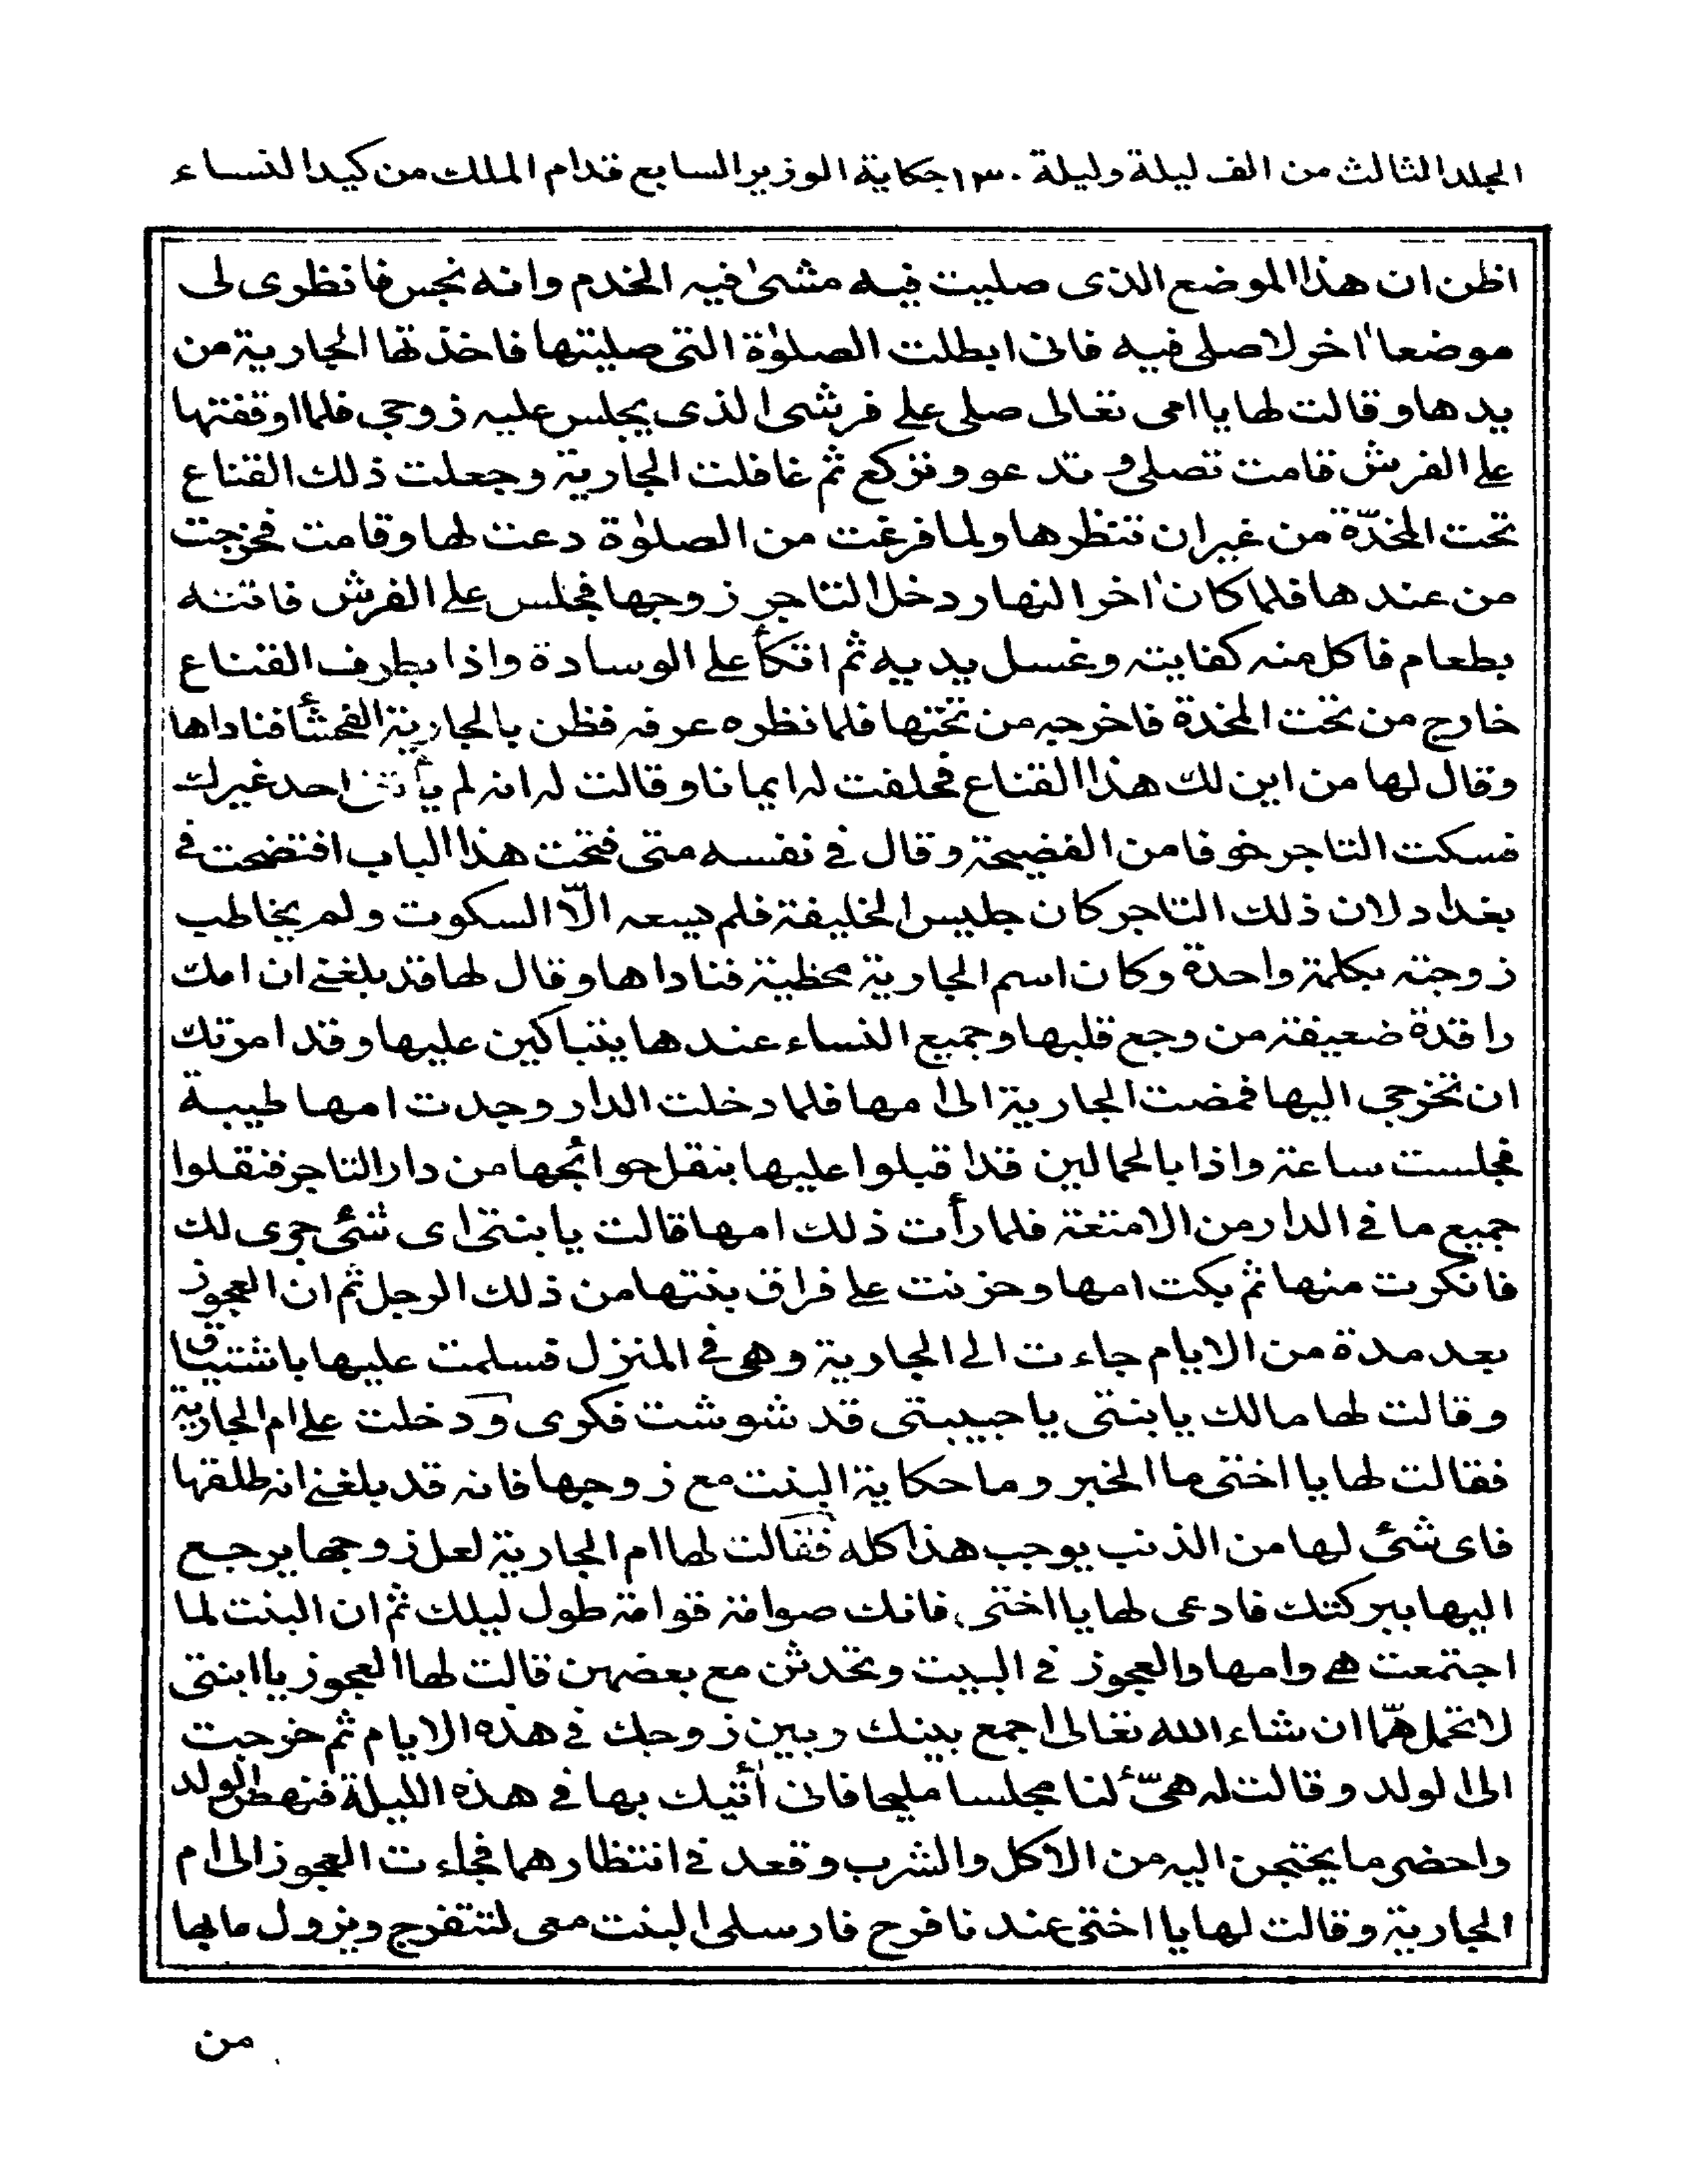 المجلد الثالث من الف ليلة وليلة ١٣٠ حكاية الوزير السابع قدام الملك من كيد النساء
اظن ان هذا الموضع الذى صليت فيه مشى فيه الخدم وانه نجس فانظرى لى
موضعا اخر لاصلى فيه فانى ابطلت الصلوة التى صليتها فاخذتها الجارية من
يدها وقالت لها يا امى تعالى صلى على فرشى الذى يجلس عليه زوجى فلما اوقفتها
على الفرش قامت تصلى و تدعو وتركع ثم غافلت الجارية وجعلت ذلك القناع
تحت المخدّة من غير ان تنظرها ولما فرغت من الصلوة دعت لها وقامت فخرجت
من عندها فلما كان اخر النهار دخل التاجر زوجها فجلس على الفرش فاتته
بطعام فاكل منه كفايته وغسل يديه ثم اتكأ على الوسادة واذا بطرف القناع
خارج من تحت المخدة فاخرجه من تحتها فلما نظره عرفه فظن بالجارية الفحشأ فناداها
وقال لها من اين لك هذا القناع فحلفت له ايمانا وقالت له انه لم يأتنى احد غيرك
فسكت التاجر خوفا من الفضيحة وقال فى نفسه متى فتحت هذا الباب افتضحت فى
بغداد لان ذلك التاجر كان جليس الخليفة فلم يسعه الّا السكوت ولم يخاطب
زوجته بكلمة واحدة وكان اسم الجارية محظية فناداها وقال لها قد بلغنى ان امك
راقدة ضعيفة من وجع قلبها وجميع النساء عندها يتباكين عليها وقد امرتك
ان تخرجى اليها فمضت الجارية الى امها فلما دخلت الدار وجدت امها طيبة
فجلست ساعة واذا بالحمالين قد اقبلوا عليها بنقل حوائجها من دار التاجر فنقلوا
جميع ما فى الدار من الامتعة فلما رأت ذلك امها قالت يا بنتى اى شئ جرى لك
فانكرت منها ثم بكت امها وحزنت على فراق بنتها من ذلك الرجل ثم ان العجوز
بعد مدة من الايام جاءت الى الجارية وهى فى المنزل فسلمت عليها باشتياق
وقالت لها مالك يا بنتى يا حبيبتى قد شوشت فكرى ودخلت على ام الجارية
فقالت لها يا اختى ما الخبر وما حكاية البنت مع زوجها فانه قد بلغنى انه طلقها
فاى شئ لها من الذنب يوجب هذا كله فقالت لها ام الجارية لعل زوجها يرجع
اليها ببركتك فادعى لها يا اختى فانك صوامة قوامة طول ليلك ثم ان البنت لما
اجتمعت هى وامها والعجوز فى البيت وتحدثن مع بعضهن قالت لها العجوز يا ابنتى
لا تحمل همّا ان شاء الله تعالى اجمع بينك وبين زوجك فى هذه الايام ثم خرجت
الى الولد وقالت له هيّئ لنا مجلسا مليحا فانى أتيك بها فى هذه الليلة فنهض الولد
واحضر ما يحتجن اليه من الاكل والشرب وقعد فى انتظارهما فجاءت العجوز الى ام
الجارية وقالت لها يا اختى عندنا فرح فارسلى البنت معى لتتفرج ويزول ما بها
من